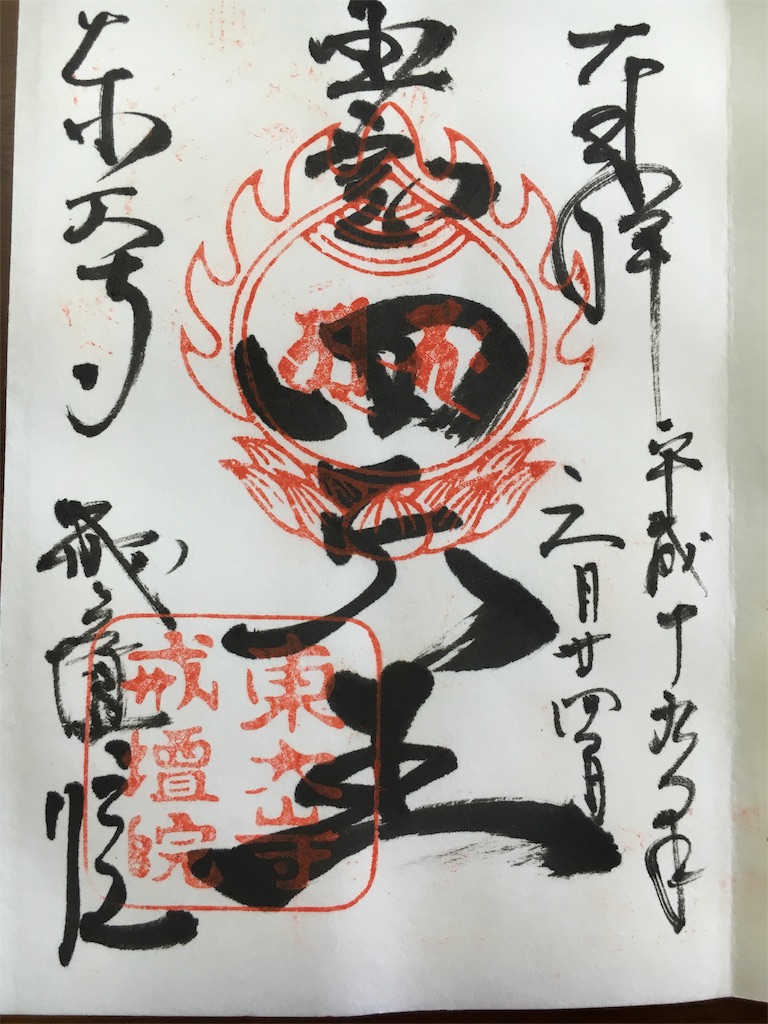 奉拝 平成十九年
三月廿四日
四天王
東大寺 戒壇院
東大寺
戒壇院